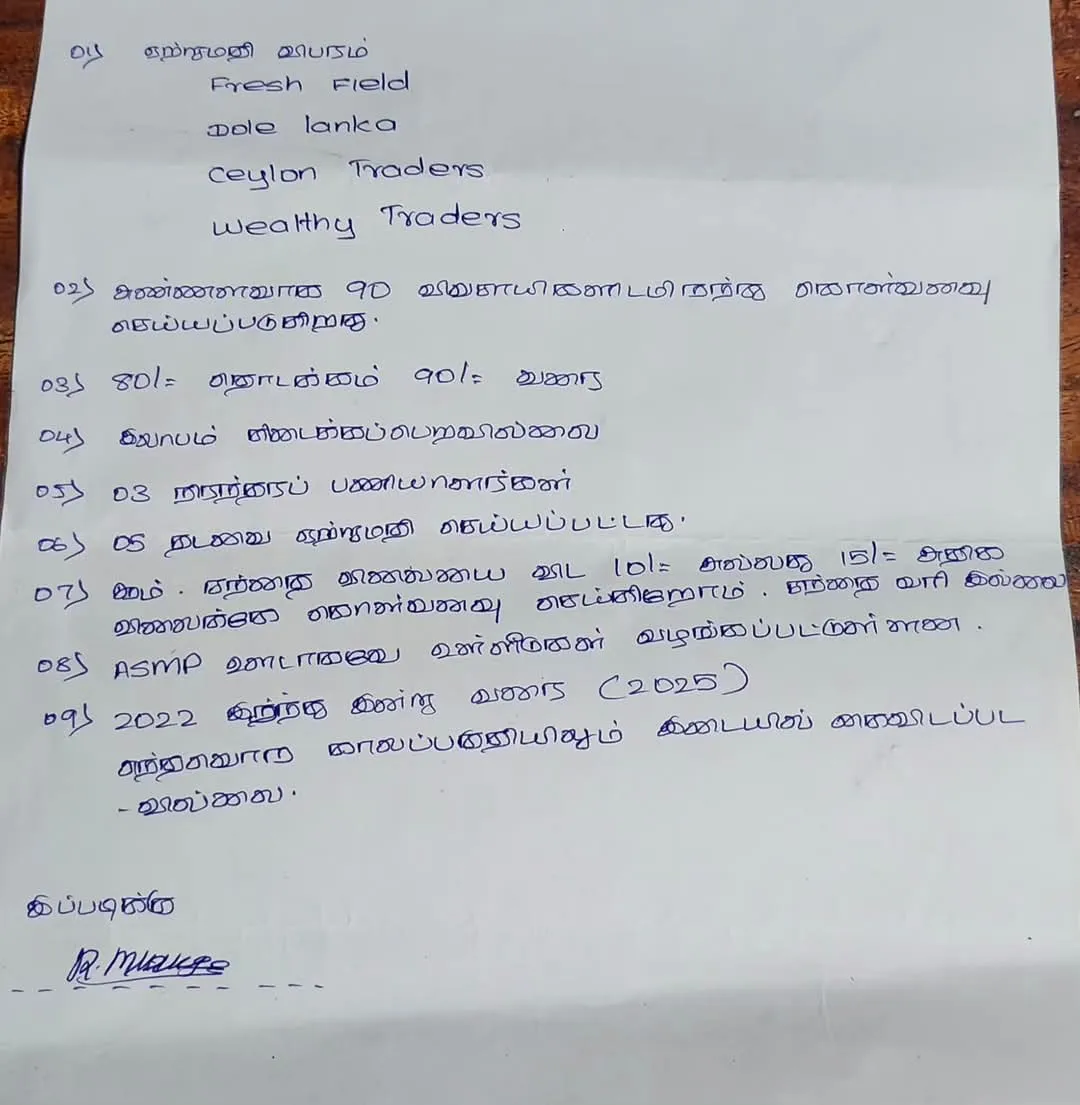 01) ஏற்றுமதி விபரம்
Fresh Field
Dole lanka
Ceylon Traders
Wealthy Traders
02) அண்ணளவாக 90 விவசாயிகளிடமிருந்து கொள்வனவு
செய்யப்படுகிறது.
03) 80/= தொடக்கம் 90/= வரை
04) இலாபம் கிடைக்கப்பெறவில்லை
05) 03 நிரந்தரப் பணியாளர்கள்
06) 05 தடவை ஏற்றுமதி செய்யப்பட்டது.
07) ஆம். சந்தை விலையை விட 10/= அல்லது 15/= அதிக
விலைக்கே கொள்வனவு செய்கிறோம். சந்தை வரி இல்லை
08) ASMP ஊடாகவே உள்ளீடுகள் வழங்கப்பட்டுள்ளன.
09) 2022 இருந்து இன்று வரை (2025)
எந்தவொரு காலப்பகுதியிலும் இடையில் கைவிடப்பட
- வில்லை.
இப்படிக்கு